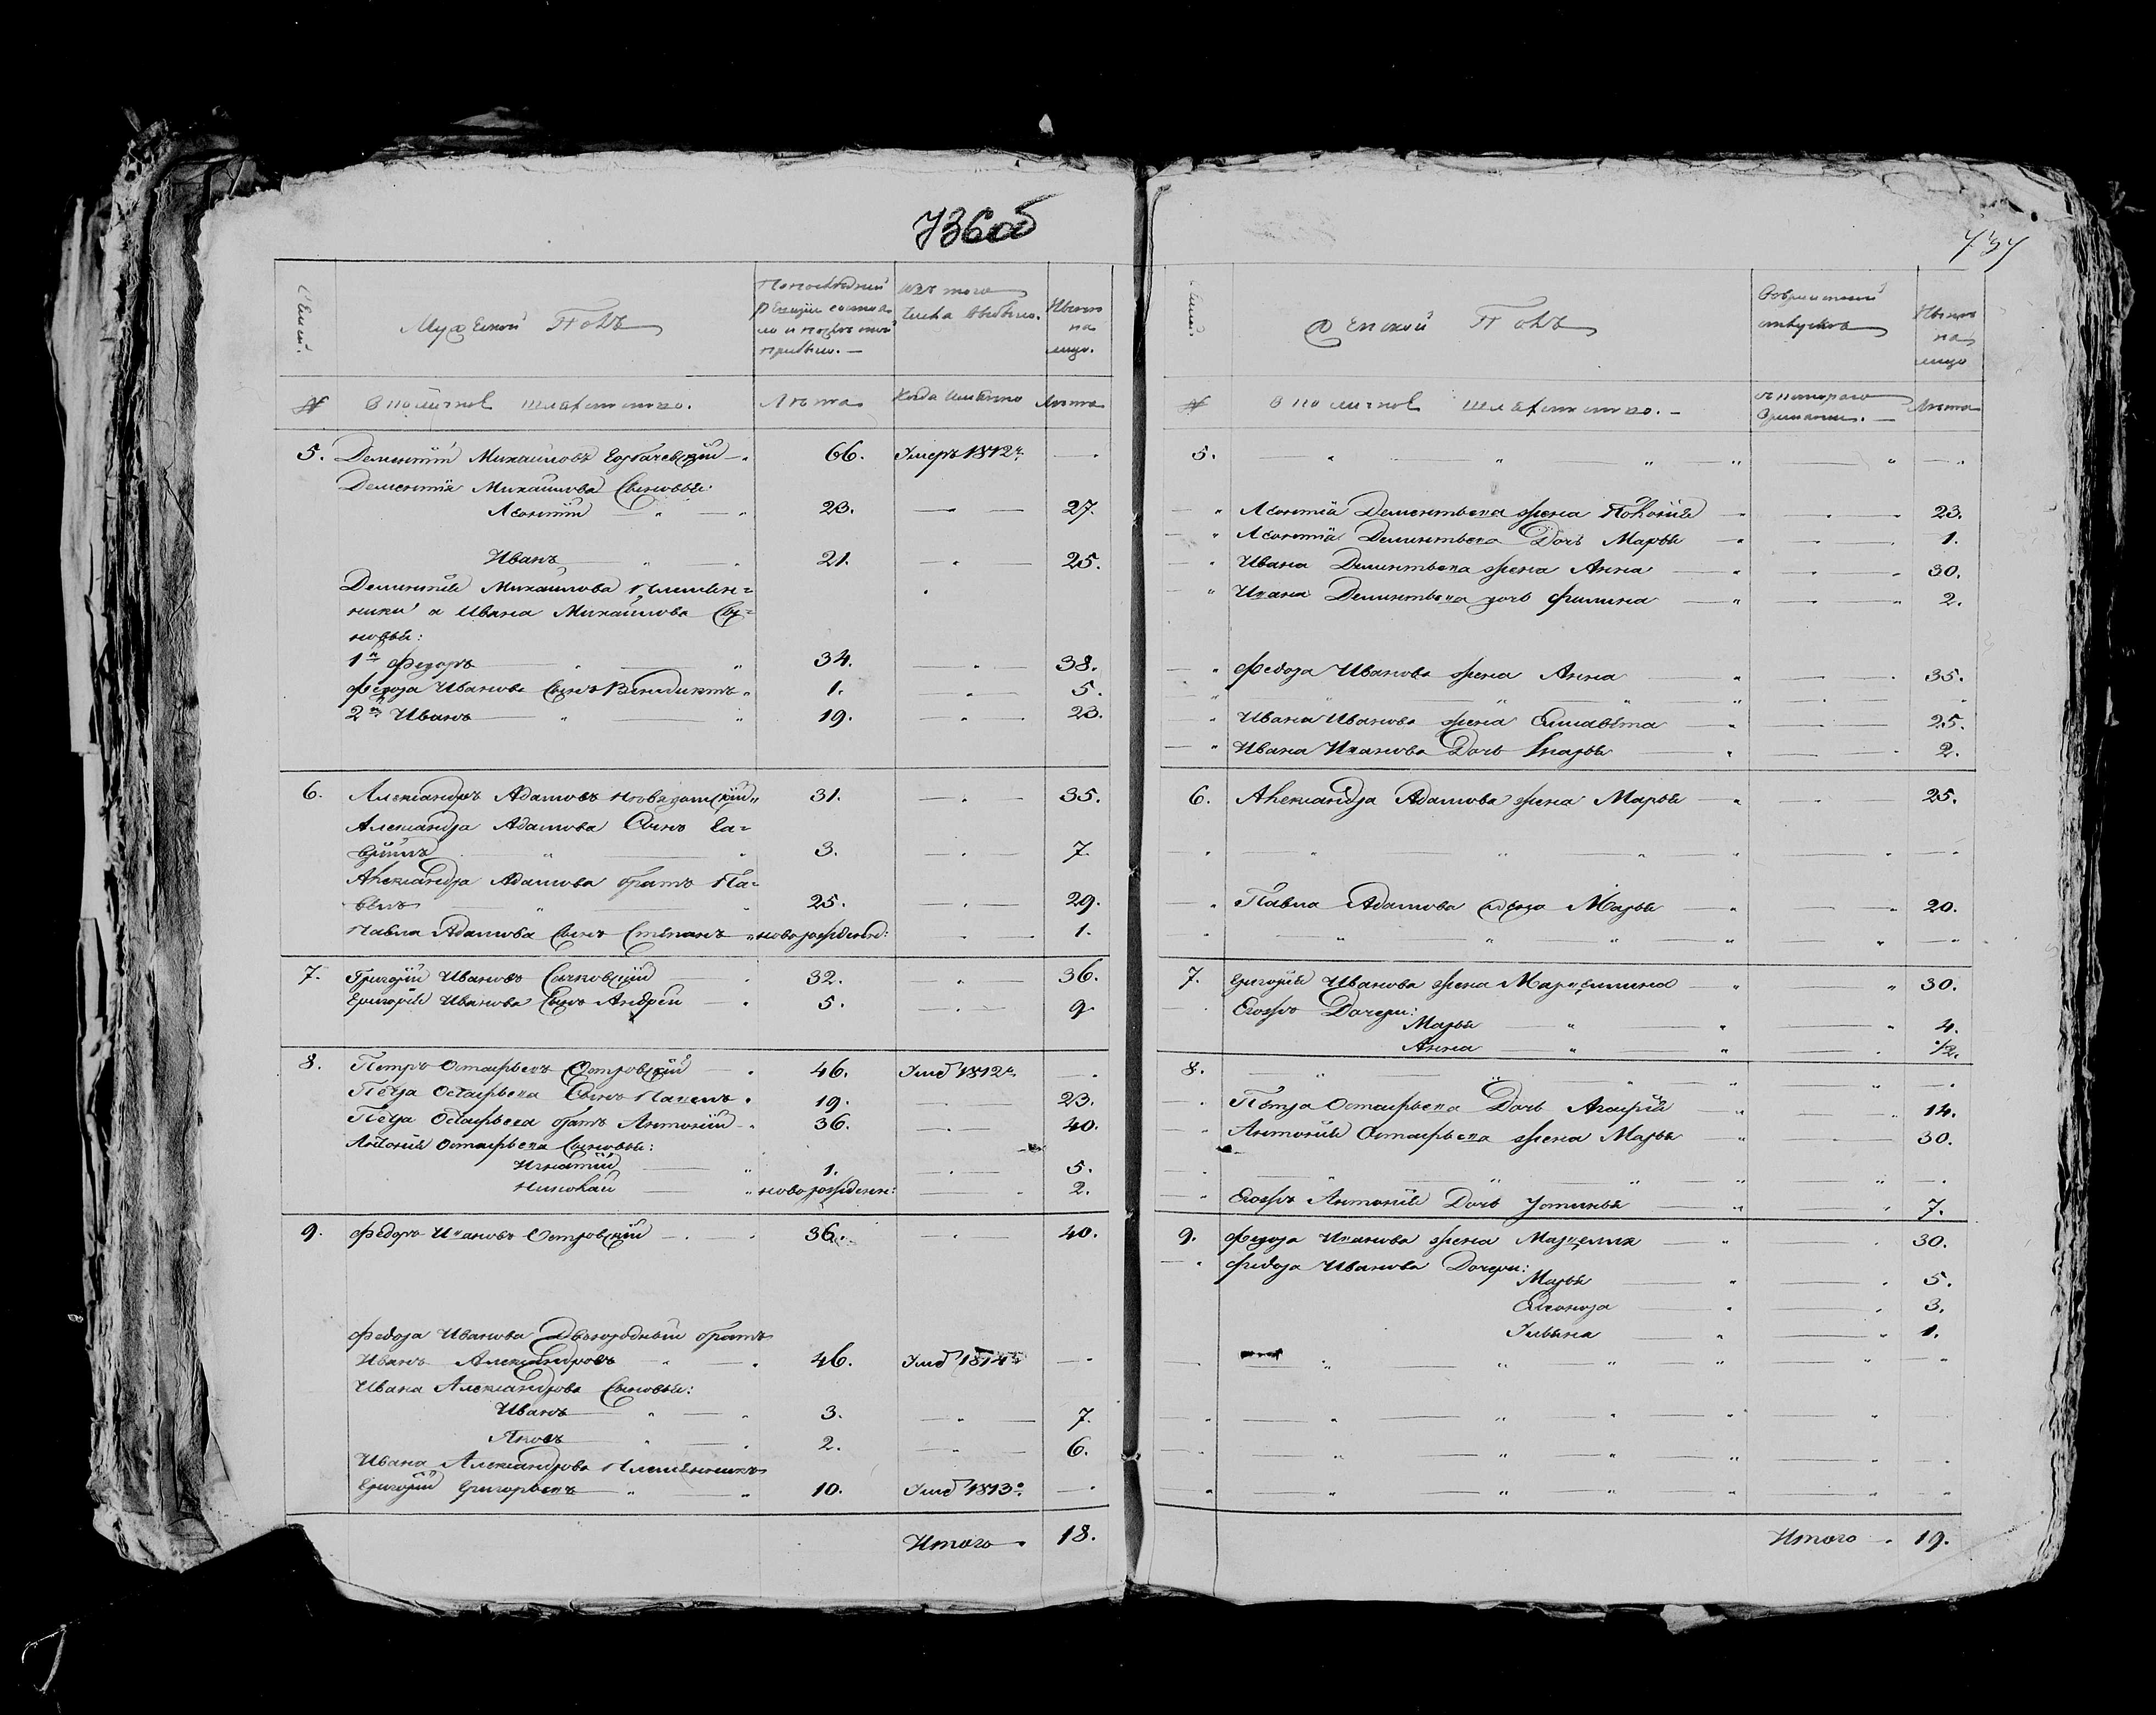 736об
737
Семей.
Мужеской Полъ
По последней
ревизии состоя-
ло и после того
прибыло. —
Изъ того
числа выбыло.
Ныне
на
лицо.
№
Околичной шляхты.
Лета
Когда именно
Лета
5. Дементiй Михайловъ Горбачевскiй — 66. Умеръ 1812г. —
Дементiя Михайлова Сыновья:
Леонтiй — 23. — 27.
Иванъ — 21. — 25.
Дементiя Михайлова племян=
ники а Ивана Михайлова Сы=
новья:
1й Федоръ — 34. — 38.
Федора Иванова Сынъ Венедиктъ 1. — 5.
2й Иванъ — 19. — 23.
6. Александръ Адамовъ 31. — 35.
Александра Адамова Сынъ Га=
врiилъ 3. — 7.
Александра Адамова братъ Па=
велъ 25. — 29.
Павла Адамова Сынъ Степанъ новорожденн: — 1.
7. Григорiй Ивановъ Сачковскiй 32. — 36.
Григорiя Иванова Сынъ Андрей — 5. — 9
8. Петръ Остафьевъ Островскiй — 46. Умеръ 1812г. —
Петра Остафьева Сынъ Павелъ 19. 23.
Петра Остафьева братъ Антонiй 36. — 40.
Антонiя Остафьева Сыновья:
Игнатiй — 1. — 5.
Николай — новорожденн: — 2.
9. Федоръ Ивановъ Островскiй — 36. 40.
Федора Иванова Двоюродный братъ
Иванъ Александровъ — 46. Умеръ 1814г. —
Ивана Александрова Сыновья:
Иванъ — 3. — 7.
Яковъ — 2. — 6.
Ивана Александрова Племянникъ
Григорiй Григорьевъ — 10. Умеръ 1813г. —
Итого 18.
Семей.
Женской Полъ
Во временной
отлучке
Ныне
на
лицо
№
Околичной шляхты. —
съ котораго
времени. —
Лета
5.
Леонтiя Дементьева жена 23.
Леонтiя Дементьева Дочь Марья — 1.
Ивана Дементьева жена Анна — 30.
Ивана Дементьева дочь 2.
Федора Иванова жена Анна — 35.
Ивана Иванова жена Елисавета 25.
Ивана Иванова Дочь Марья — 2.
6. Александра Адамова жена Марья — 25.
Павла Адамова жена Марья — 20.
7. Григорiя Иванова жена Марцелина — 30.
Егожъ Дочери:
Марья — 4.
Анна — 1/2.
8.
Петра Остафьева Дочь Агафiя — 14.
Антонiя Остафьева жена Марья — 30.
Егожъ Антонiя Дочь Устинья — 7.
9. Федора Иванова жена 30.
Федора Иванова Дочери:
Марья — 5.
3.
Ульяна — 1.
Итого — 19.